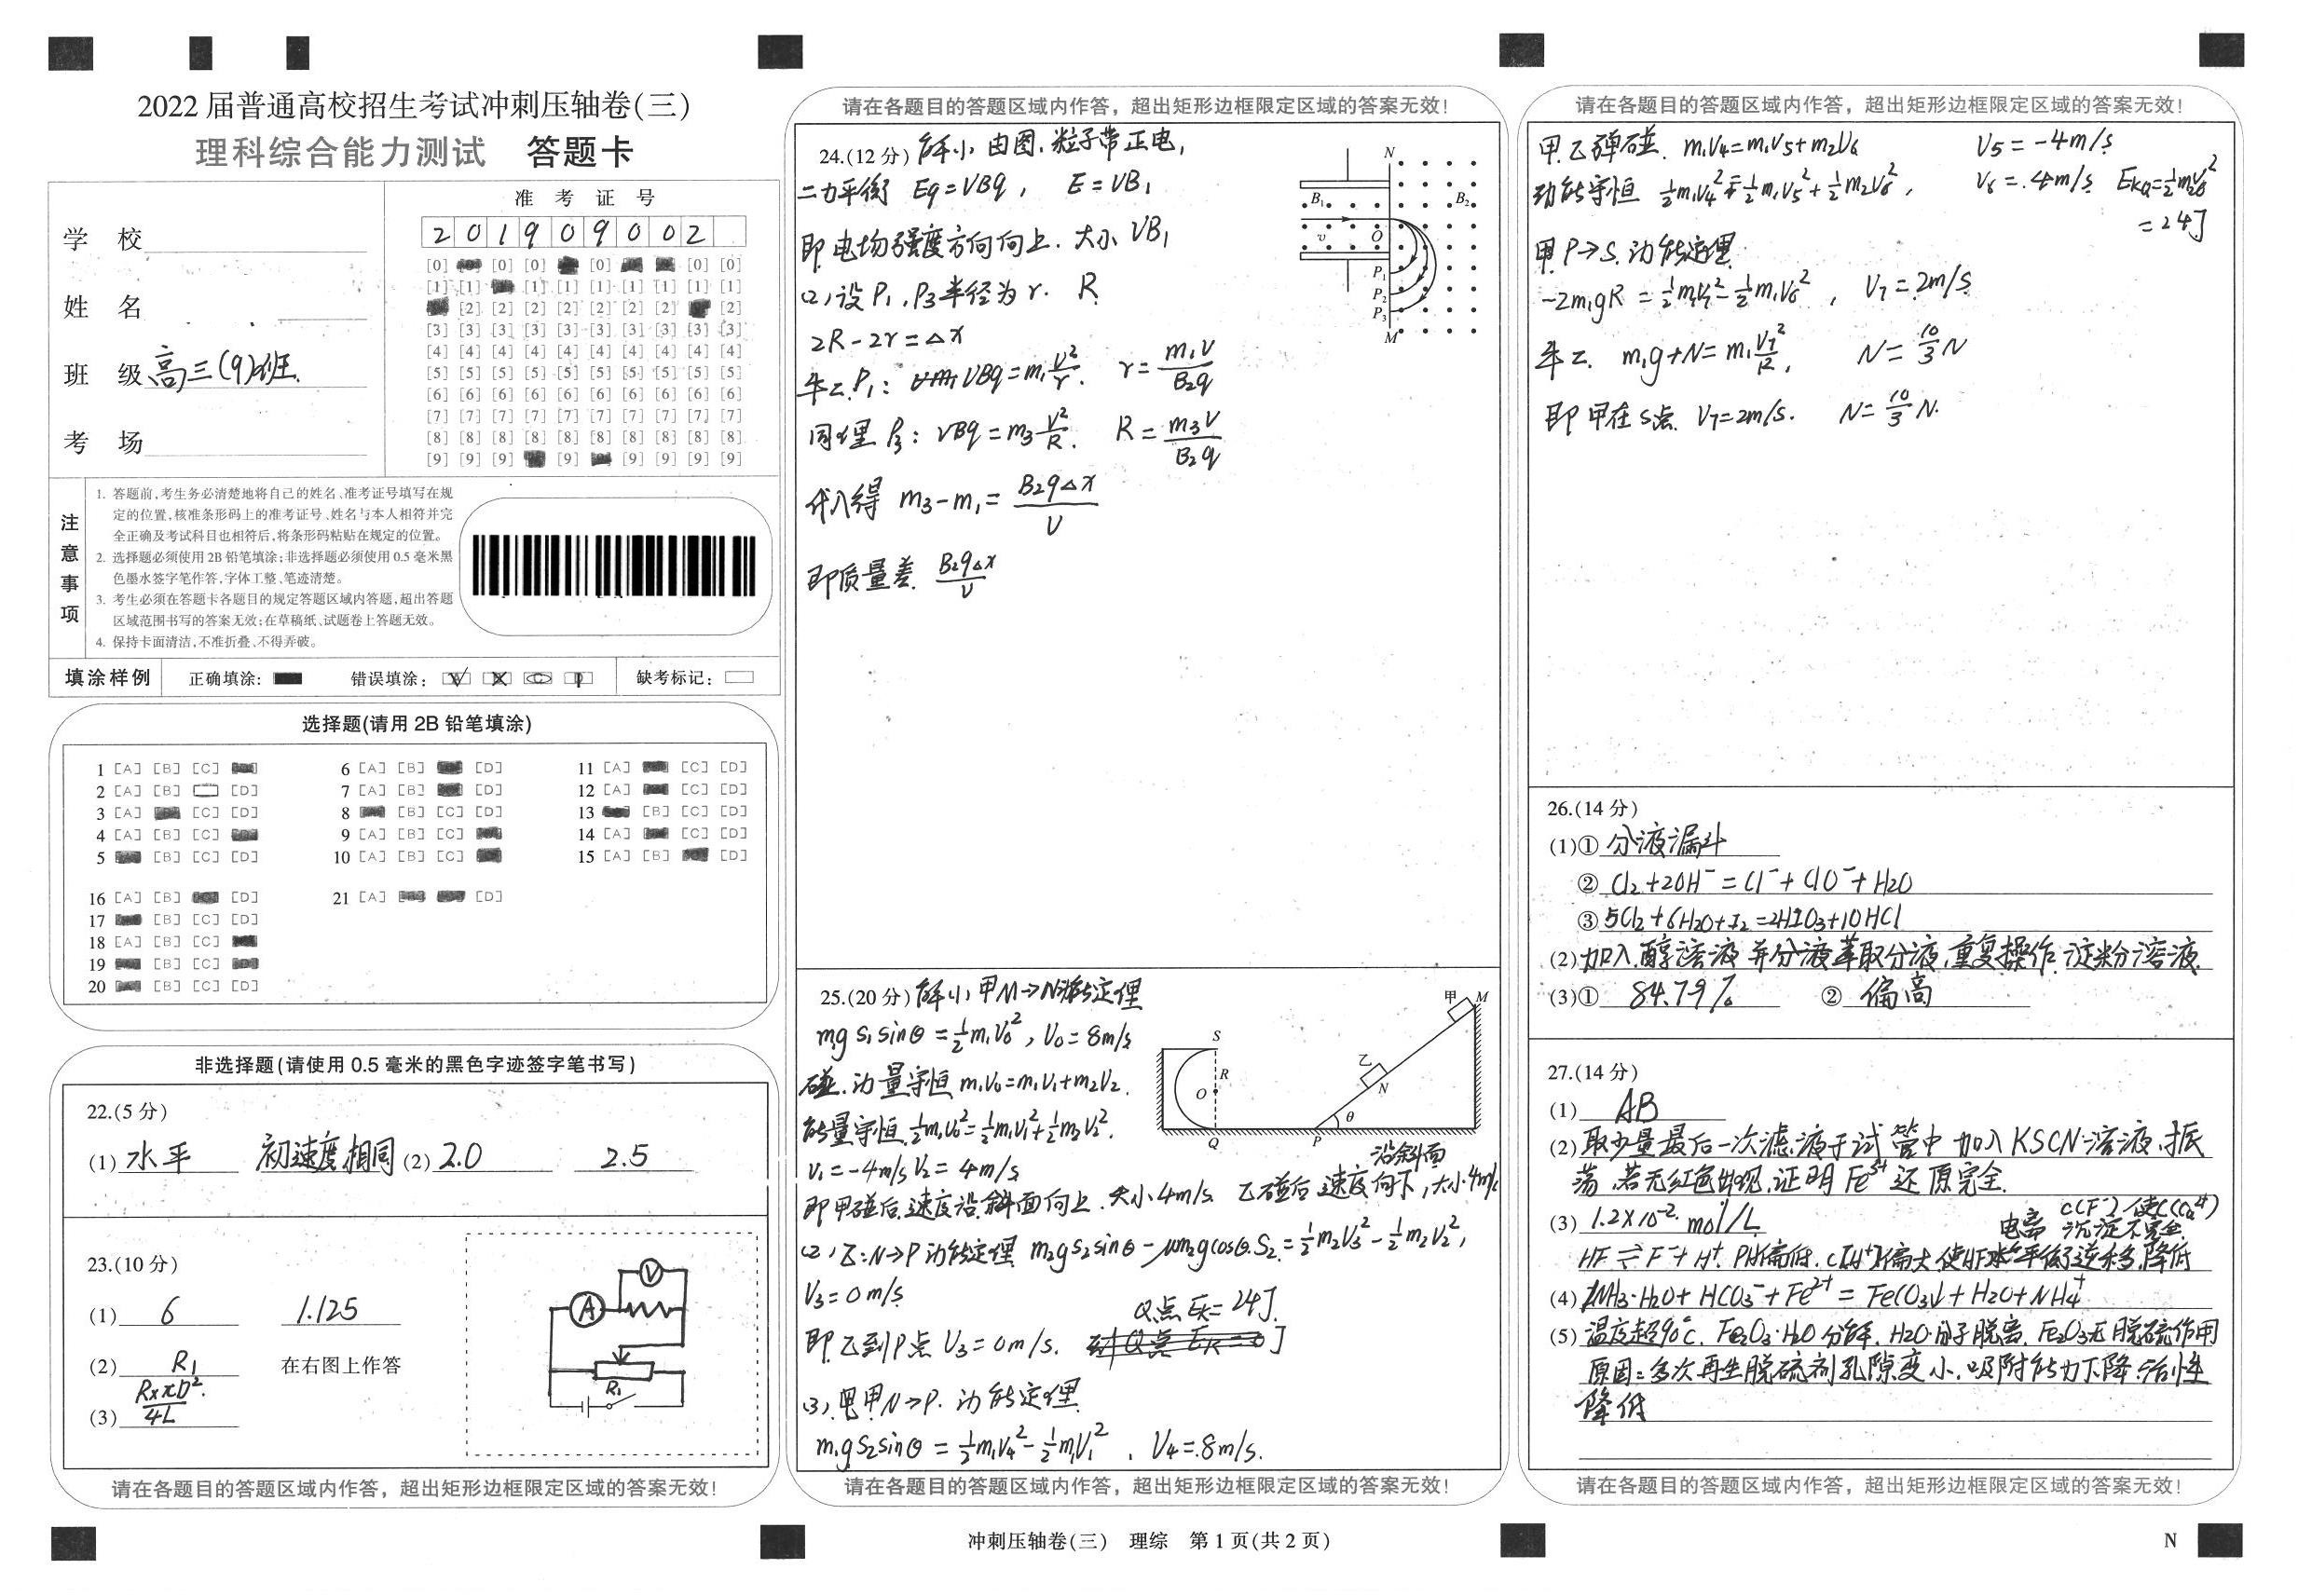 2022 届普通高校招生考试冲刺压轴卷(三)
理科综合能力测试 答题卡
准 考 证 号
2 0 1 9 0 9 0 0 2
[0] [0] [0] [0] [0] [0] [0]
[1] [1] [1] [1] [1] [1] [1] [1] [1]
[2] [2] [2] [2] [2] [2] [2] [2]
[3] [3] [3] [3] [3] [3] [3] [3] [3] [3]
[4] [4] [4] [4] [4] [4] [4] [4] [4] [4]
[5] [5] [5] [5] [5] [5] [5] [5] [5] [5]
[6] [6] [6] [6] [6] [6] [6] [6] [6] [6]
[7] [7] [7] [7] [7] [7] [7] [7] [7] [7]
[8] [8] [8] [8] [8] [8] [8] [8] [8] [8]
[9] [9] [9] [9] [9] [9] [9] [9]
学 校
姓 名
班 级 高三(9)班
考 场
注意事项
1. 答题前,考生务必清楚地将自己的姓名、准考证号填写在规
定的位置,核准条形码上的准考证号、姓名与本人相符并完
全正确及考试科目也相符后,将条形码粘贴在规定的位置。
2. 选择题必须使用2B铅笔填涂;非选择题必须使用0.5毫米黑
色墨水签字笔作答,字体工整、笔迹清楚。
3. 考生必须在答题卡各题目的规定答题区域内答题,超出答题
区域范围书写的答案无效;在草稿纸、试题卷上答题无效。
4. 保持卡面清洁,不准折叠、不得弄破。
填涂样例 正确填涂: 错误填涂: 缺考标记:
选择题(请用 2B 铅笔填涂)
1 [A] [B] [C] 6 [A] [B] [D] 11 [A] [C] [D]
2 [A] [B] [D] 7 [A] [B] [D] 12 [A] [C] [D]
3 [A] [C] [D] 8 [B] [C] [D] 13 [B] [C] [D]
4 [A] [B] [C] 9 [A] [B] [C] 14 [A] [C] [D]
5 [B] [C] [D] 10 [A] [B] [C] 15 [A] [B] [D]
16 [A] [B] [D] 21 [A] [D]
17 [B] [C] [D]
18 [A] [B] [C]
19 [B] [C]
20 [B] [C] [D]
非选择题(请使用 0.5 毫米的黑色字迹签字笔书写)
22.(5 分)
(1) 水平 初速度相同 (2) 2.0 2.5
23.(10 分)
(1) 6 1.125
(2) R₁ 在右图上作答
(3) RxπD²/4L
V
A
R₁
请在各题目的答题区域内作答，超出矩形边框限定区域的答案无效!
请在各题目的答题区域内作答，超出矩形边框限定区域的答案无效!
24.(12 分) 解(1) 由图,粒子带正电,
二力平衡 Eq=VBq, E=VB₁
即电场强度方向向上.大小VB₁
(2)设P₁,P₃半径为r. R
2R-2r=△x
牛二.P₁: VBq=m₁V²/r. r=m₁V/B₂q
同理P₃: VBq=m₃V²/R. R=m₃V/B₂q
代入得 m₃-m₁=B₂q△x/V
即质量差 B₂q△x/V
N
B₁ B₂
v O
P₁
P₂
P₃
M
25.(20 分) 解(1)甲M→N动能定理
m₁gs₁sinθ=½m₁V₀², V₀=8m/s
碰.动量守恒 m₁V₀=m₁V₁+m₂V₂.
能量守恒.½m₁V₀²=½m₁V₁²+½m₂V₂².
V₁=-4m/s V₂=4m/s
即甲碰后速度沿斜面向上.大小4m/s 乙碰后速度沿斜面向下,大小4m/s
(2)乙:N→P动能定理 m₂gs₂sinθ-μm₂gcosθ.S₂=½m₂V₃²-½m₂V₂²,
V₃=0m/s Q点Ek=24J.
即乙到P点V₃=0m/s. 到Q点Ek=0J
(3).甲N→P.动能定理
m₁gS₂sinθ=½m₁V₄²-½m₁V₁², V₄=8m/s.
甲 M
S
乙
R
O N
θ
Q P
请在各题目的答题区域内作答，超出矩形边框限定区域的答案无效!
请在各题目的答题区域内作答，超出矩形边框限定区域的答案无效!
甲乙弹碰. m₁V₄=m₁V₅+m₂V₆ V₅=-4m/s
动能守恒 ½m₁V₄²=½m₁V₅²+½m₂V₆², V₆=4m/s EkQ=½m₂V₆²
=24J
甲P→S.动能定理
-2m₁gR=½m₁V₇²-½m₁V₆², V₇=2m/s
牛二. m₁g+N=m₁V₇²/R, N=10/3N
即甲在S点 V₇=2m/s. N=10/3N.
26.(14 分)
(1)① 分液漏斗
② Cl₂+2OH⁻=Cl⁻+ClO⁻+H₂O
③ 5Cl₂+6H₂O+I₂=2HIO₃+10HCl
(2) 加入醇溶液并分液萃取分液,重复操作 淀粉溶液
(3)① 84.79% ② 偏高
27.(14 分)
(1) AB
(2) 取少量最后一次滤液于试管中加入KSCN溶液,振
荡,若无红色出现,证明Fe³⁺还原完全.
(3) 1.2×10⁻² mol/L 电离 c(F⁻)使c(Ca²⁺)沉淀不完全
HF⇌F⁻+H⁺ PH偏低.c(H⁺)偏大使HF平衡逆移,降低
(4) NH₃·H₂O+HCO₃⁻+Fe²⁺=FeCO₃↓+H₂O+NH₄⁺
(5) 温度超90℃.Fe₂O₃·H₂O分解.H₂O分子脱离.Fe₂O₃无脱硫作用
原因:多次再生脱硫剂孔隙变小.吸附能力下降.活性
降低
请在各题目的答题区域内作答，超出矩形边框限定区域的答案无效!
冲刺压轴卷(三) 理综 第 1 页(共 2 页)
N